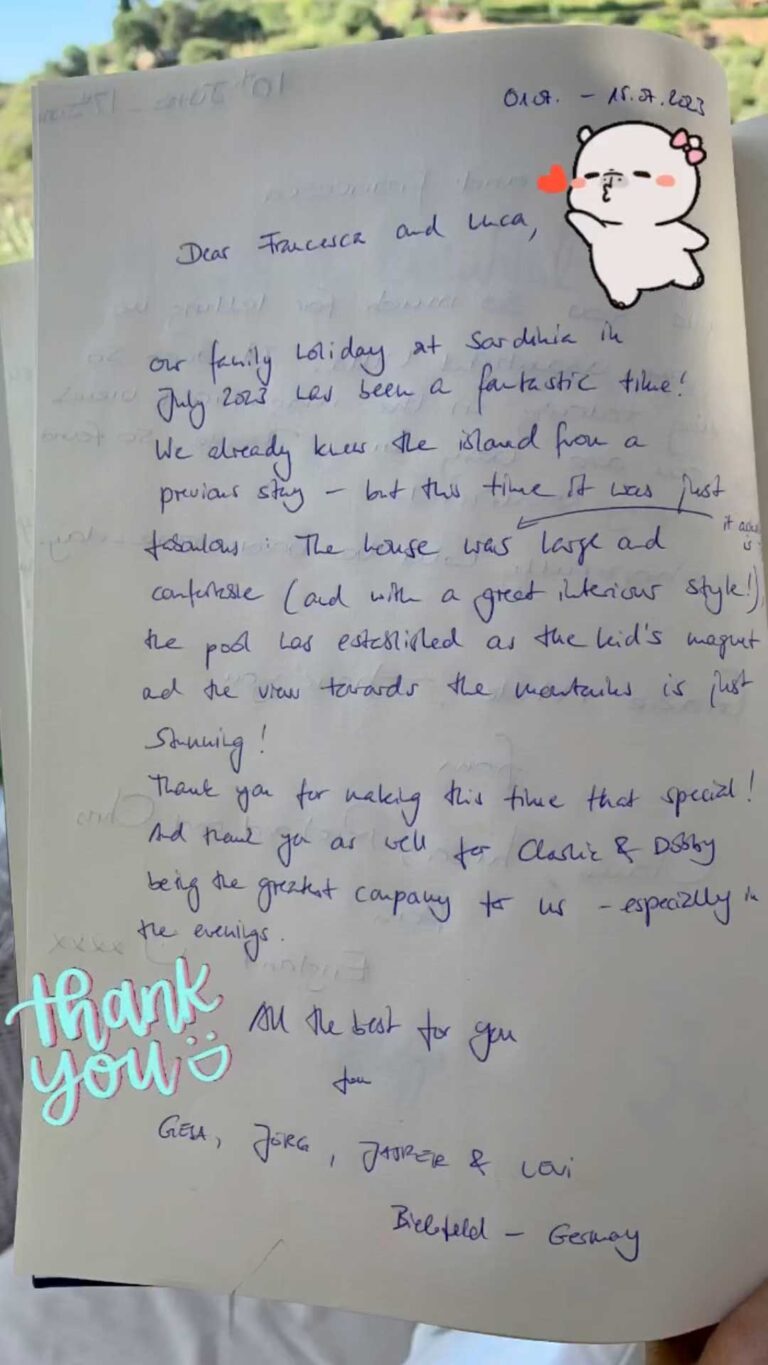 01.07. – 15.07.2023
Dear Francesca and Luca,
our family holiday at Sardinia in
July 2023 has been a fantastic time!
We already knew the island from a
previous stay – but this time it was just
fabulous: The house was large and
it
is
comfortable (and with a great interious style!),
the pool has established as the kid's magnet
and the view towards the mountains is just
stunning!
Thank you for making this time that special!
And thank you as well for & Dobby
being the greatest company to us – especially in
the evenings.
thank
you
All the best for you
from
GESA, JÖRG, JASPER & LEVI
Bielefeld – Germany